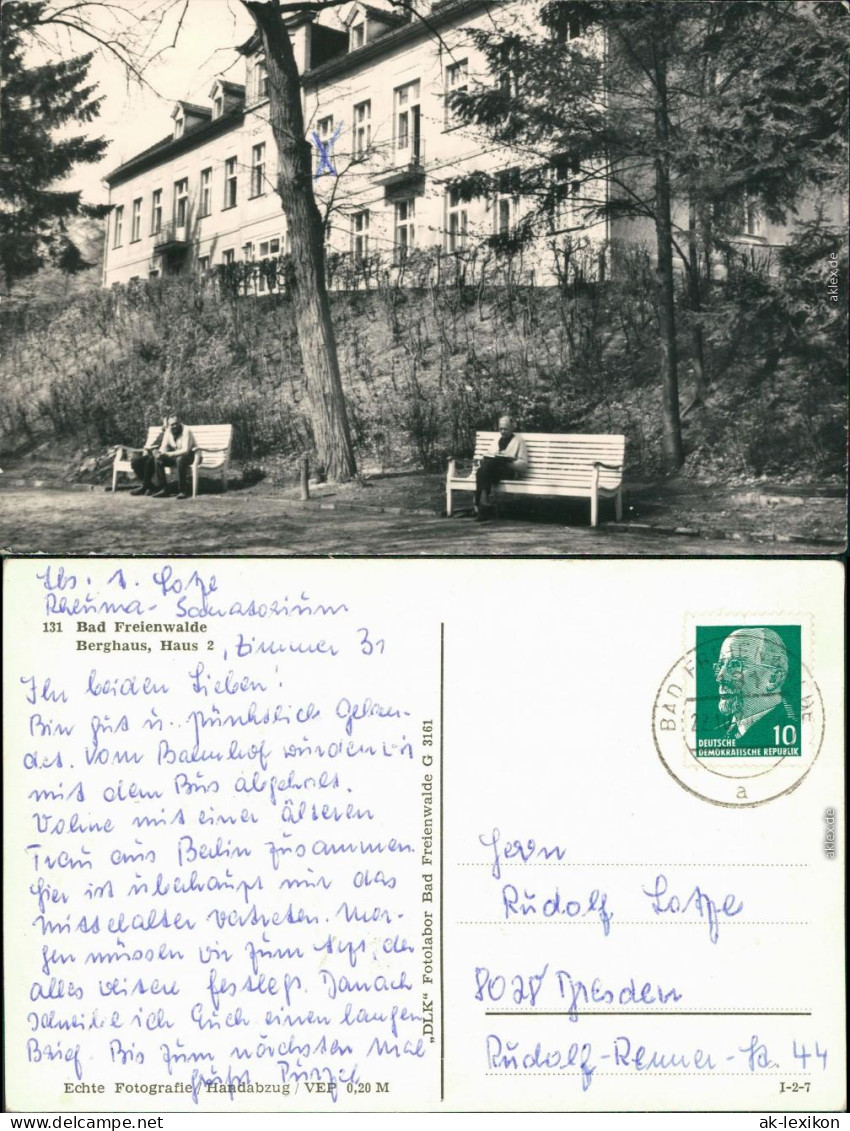 aklex.de
Abs. A. Lotze
Rheuma-Sanatorium
131 Bad Freienwalde
Berghaus, Haus 2, Zimmer 31
Ihr beiden Lieben!
Bin gut u. pünktlich gelan-
det. Vom Bahnhof wurden wir
mit dem Bus abgeholt.
Wohne mit einer älteren
Frau aus Berlin zusammen.
Hier ist überhaupt nur das
Mittelalter vertreten. Mor-
gen müssen wir zum Arzt, der
alles weitere festlegt. Danach
schreibe ich Euch einen langen
Brief. Bis zum nächsten Mal
grüßt Purzel
Echte Fotografie / Handabzug / VEP 0,20 M
„DLK“ Fotolabor Bad Freienwalde G 3161
BAD
a
10
DEUTSCHE
DEMOKRATISCHE REPUBLIK
aklex.de
Herrn
Rudolf Lotze
8028 Dresden
Rudolf-Renner-Str. 44
I-2-7
www.delcampe.net
ak-lexikon